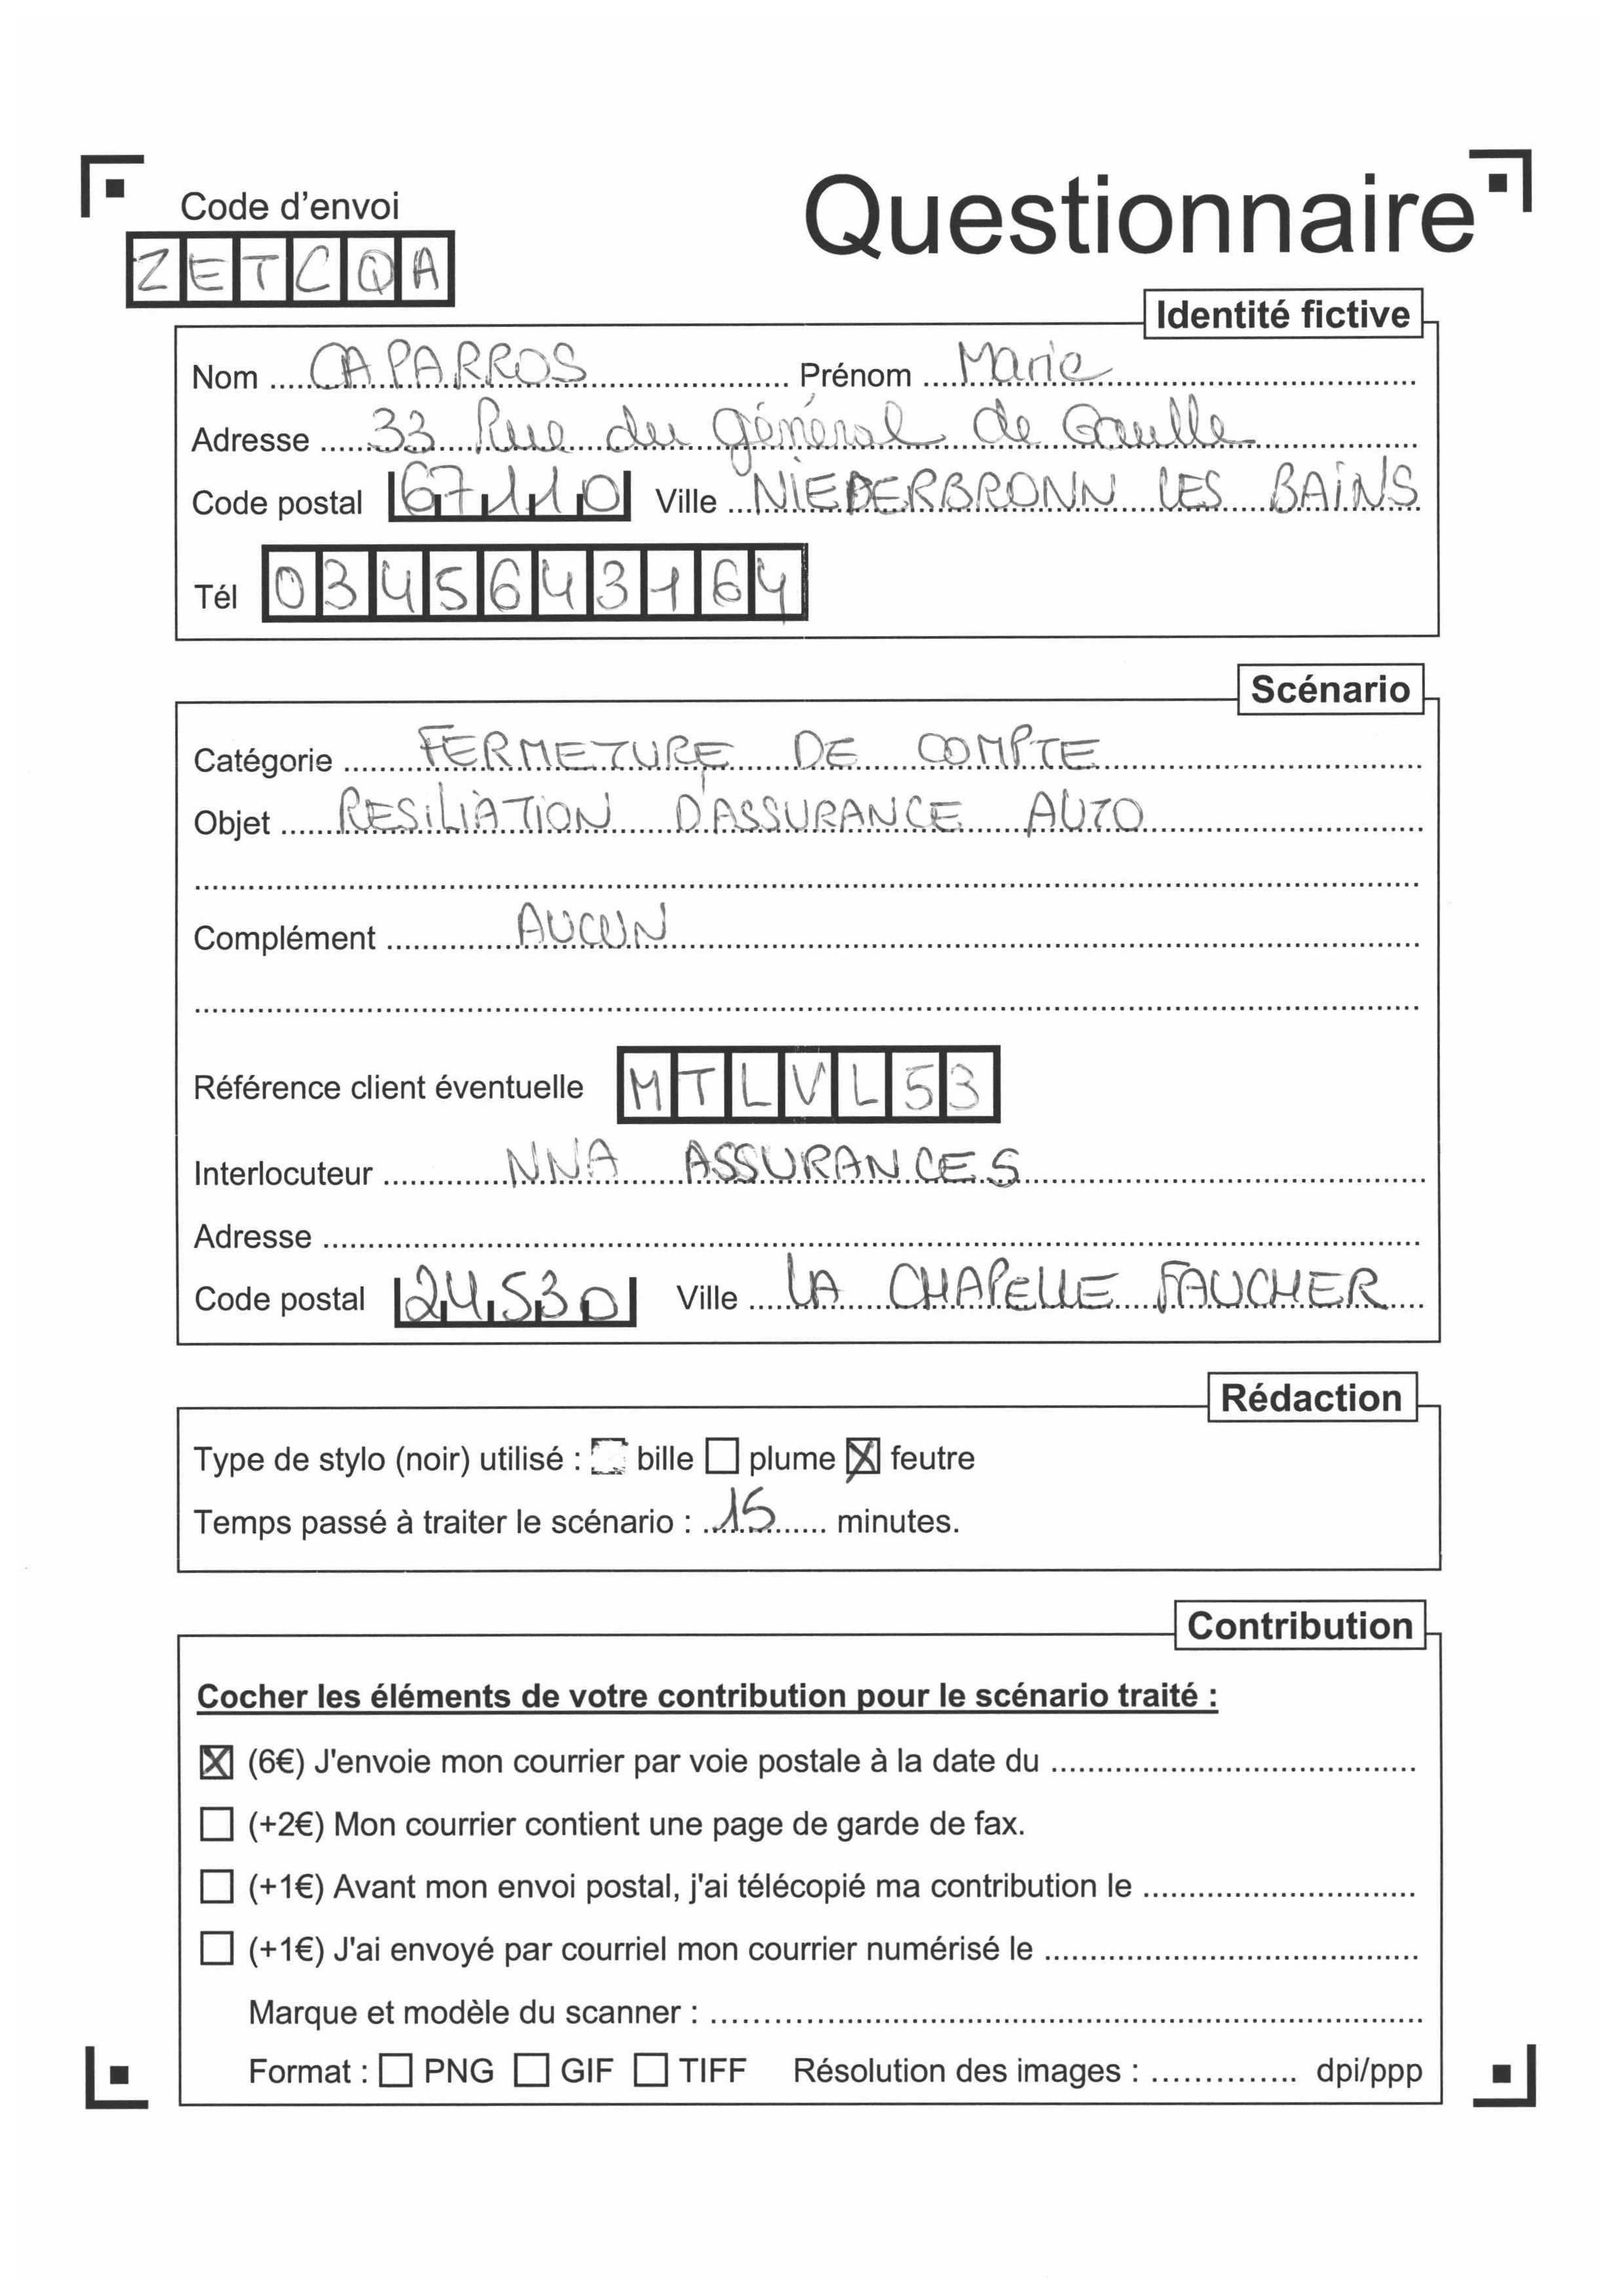 Code d'envoi
Questionnaire
ZETCQA
Identité fictive
Nom ..... CAPARROS ..... Prénom ..... Marie .....
Adresse ..... 33 Rue du général de Gaulle .....
Code postal 67110 Ville ..... NIEDERBRONN LES BAINS
Tél 0345643164
Scénario
Catégorie ..... FERMETURE DE COMPTE .....
Objet ..... RESILIATION D'ASSURANCE AUTO .....
Complément ..... AUCUN .....
Référence client éventuelle MTLVL53
Interlocuteur ..... NNA ASSURANCES .....
Adresse .....
Code postal 24530 Ville ..... LA CHAPELLE FAUCHER .....
Rédaction
Type de stylo (noir) utilisé : ☐ bille ☐ plume ☒ feutre
Temps passé à traiter le scénario : ..... 15 ..... minutes.
Contribution
Cocher les éléments de votre contribution pour le scénario traité :
☒ (6€) J'envoie mon courrier par voie postale à la date du .....
☐ (+2€) Mon courrier contient une page de garde de fax.
☐ (+1€) Avant mon envoi postal, j'ai télécopié ma contribution le .....
☐ (+1€) J'ai envoyé par courriel mon courrier numérisé le .....
Marque et modèle du scanner : .....
Format : ☐ PNG ☐ GIF ☐ TIFF Résolution des images : ..... dpi/ppp